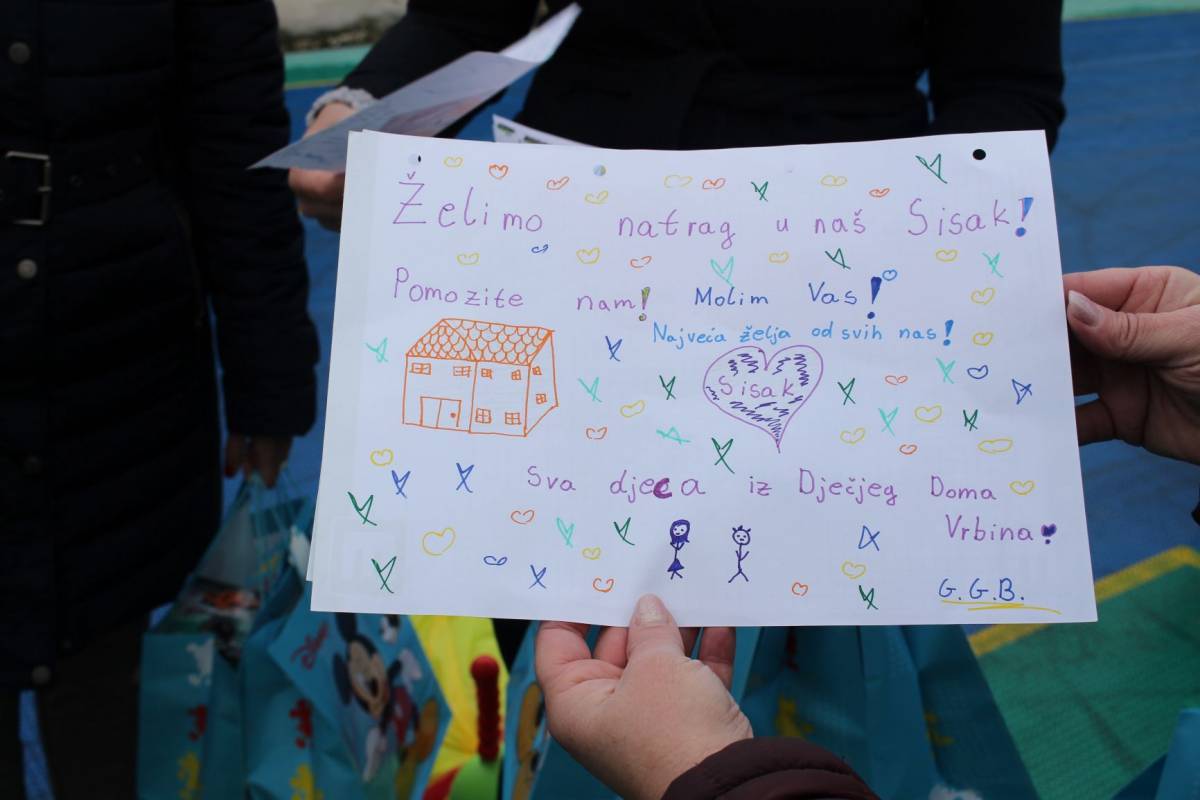 Želimo natrag u naš Sisak!
Pomozite nam! Molim Vas!
Najveća želja od svih nas!
Sisak
Sva djeca iz Dječjeg Doma
Vrbina
G.G.B.
Disney